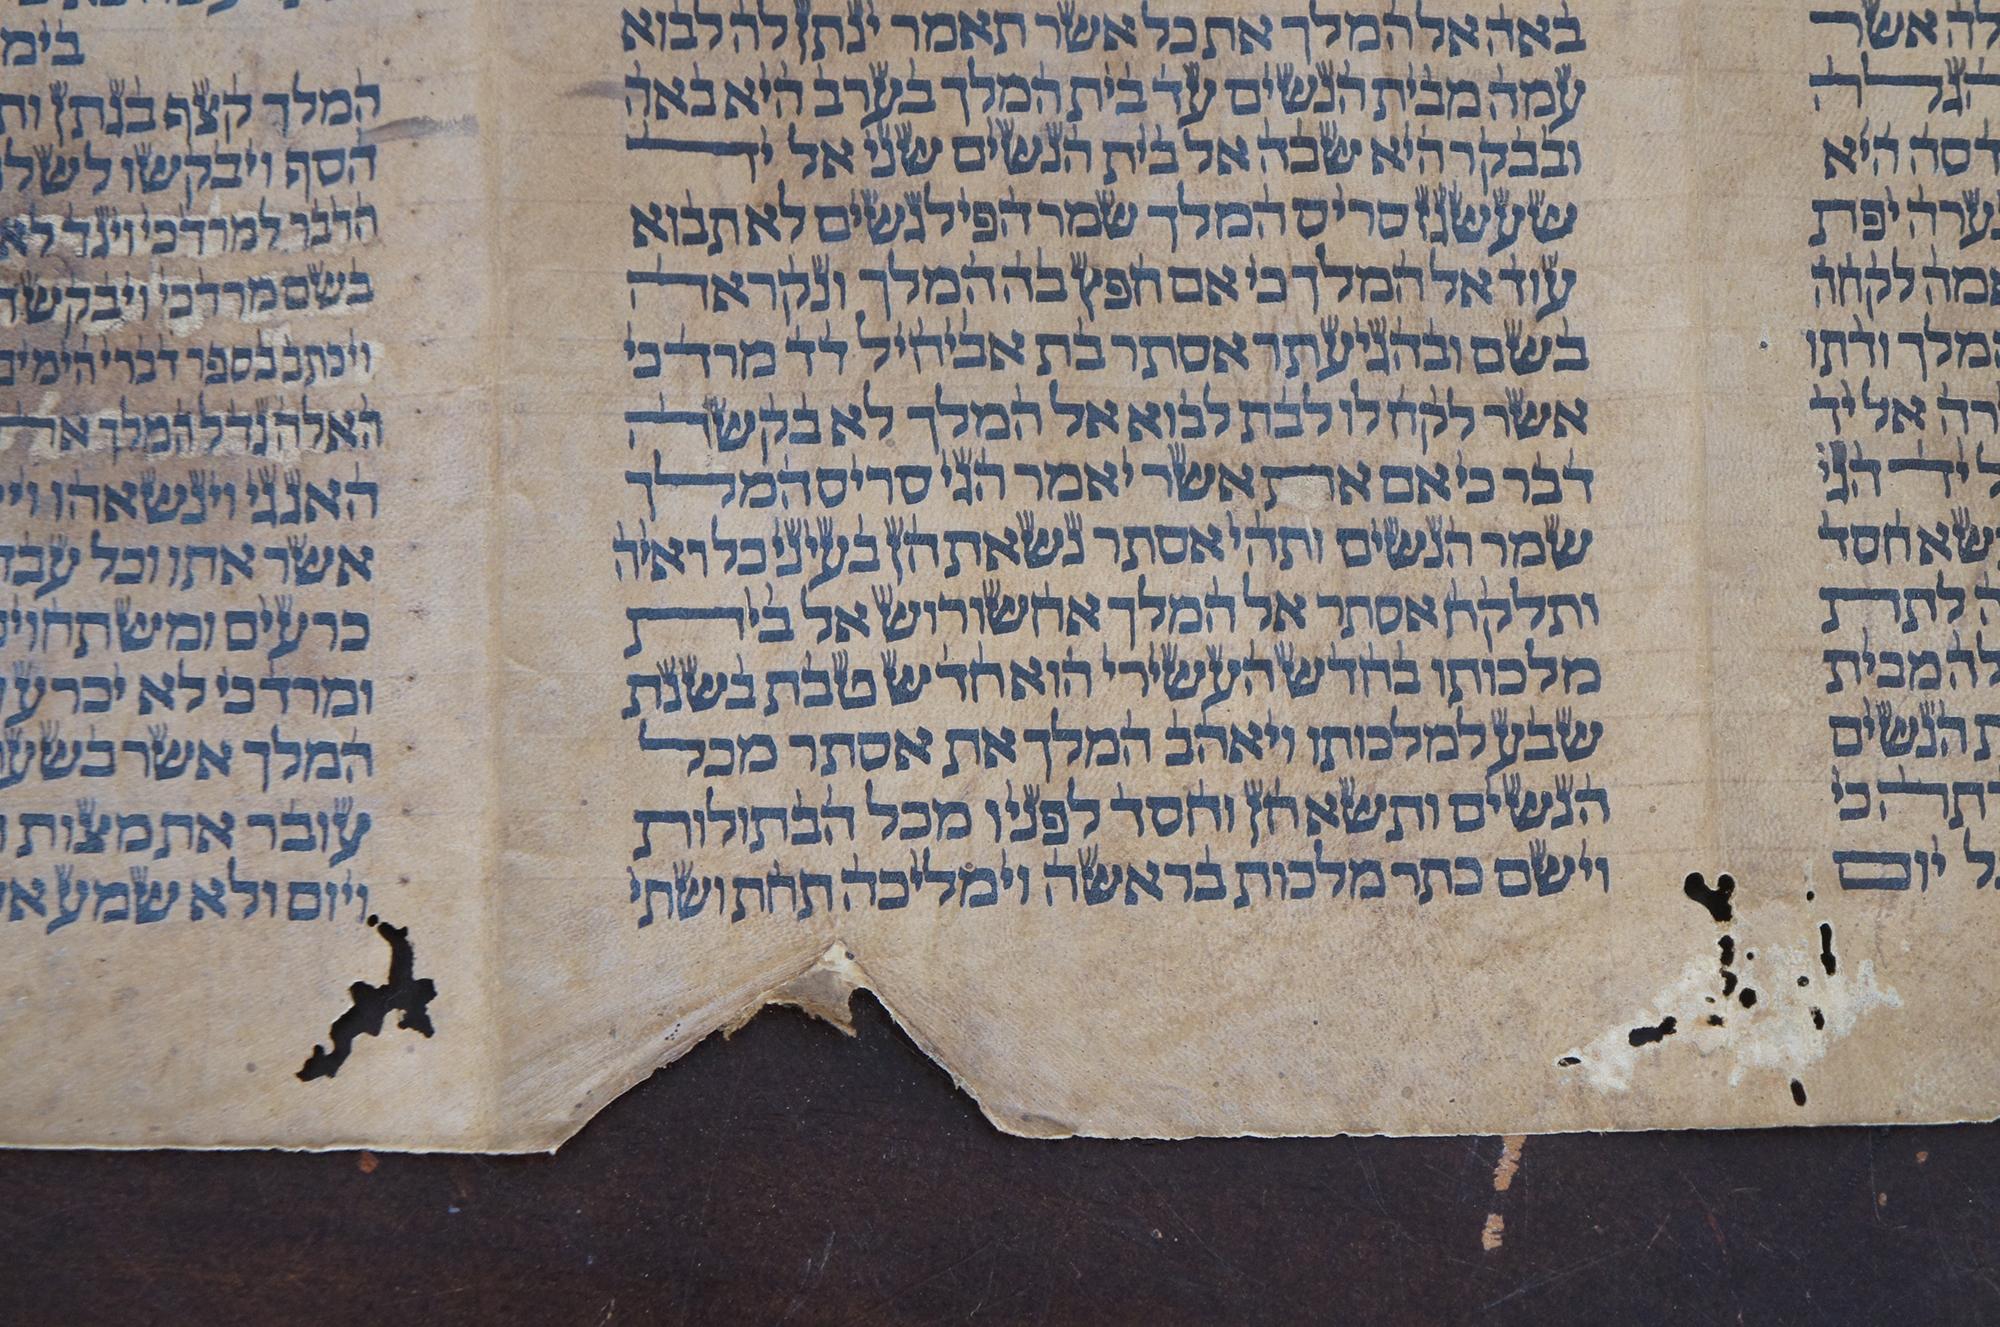 לה אשר
הגלה
דסה היא
נערה יפת
אמה לקחה
המלך ודתו
רה אל יד
ל יד הגי
שא חסד
ה לתת
לה מבית
ת הנשים
דתה כי
כל יום
באה אל המלך את כל אשר תאמר ינתן לה לבוא
עמה מבית הנשים עד בית המלך בערב היא באה
ובבקר היא שבה אל בית הנשים שני אל יד
שעשגז סריס המלך שמר הפילגשים לא תבוא
עוד אל המלך כי אם חפץ בה המלך ונקראה
בשם ובהגיע תר אסתר בת אביחיל דד מרדכי
אשר לקח לו לבת לבוא אל המלך לא בקשה
דבר כי אם את אשר יאמר הגי סריס המלך
שמר הנשים ותהי אסתר נשאת חן בעיני כל ראיה
ותלקח אסתר אל המלך אחשורוש אל בית
מלכותו בחדש העשירי הוא חדש טבת בשנת
שבע למלכותו ויאהב המלך את אסתר מכל
הנשים ותשא חן וחסד לפניו מכל הבתולות
וישם כתר מלכות בראשה וימליכה תחת ושתי
בימ
המלך קצף בגתן ות
הסף ויבקשו לשלח
הדבר למרדכי ויגד לא
בשם מרדכי ויבקש ה
ויכתב בספר דברי הימים
האלה גדל המלך א
האגגי וינשאהו וי
אשר אתו וכל עבד
כרעים ומשתחוי
ומרדכי לא יכרע
המלך אשר בשע
עובר את מצות
ויום ולא שמע א